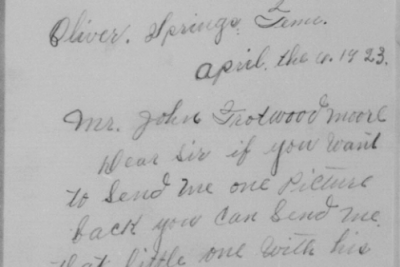 Oliver. Springs, Tenn.
April. the 10. 1923.
Mr. John Trotwood Moore
Dear Sir if you want
to send me one Picture
back you can send me.
that little one with his